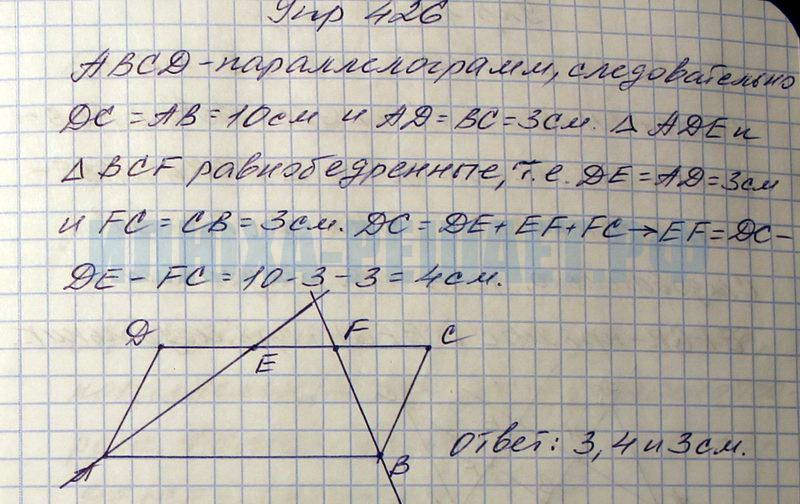 Упр 426
ABCD - параллелограмм, следовательно
DC = AB = 10 см и AD = BC = 3 см. △ ADE и
△ BCF равнобедренные, т.е. DE = AD = 3 см
и FC = CB = 3 см. DC = DE + EF + FC → EF = DC -
DE - FC = 10 - 3 - 3 = 4 см.
D E F C
A B
Ответ: 3, 4 и 3 см.